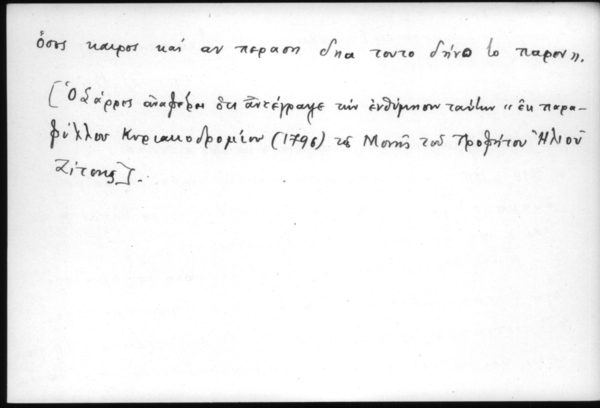 ὅσος καιρος καί αν περαση δηα τουτο δήνο το παρον».
[Ὁ Σάρρος ἀναφέρει ὅτι ἀντέγραψε τὴν ἐνθύμησιν ταύτην «ἐκ παρα-
φύλλου Κυριακοδρομίου (1796) τῆς Μονῆς τοῦ Προφήτου Ἠλιοῦ
Ζίτσης].